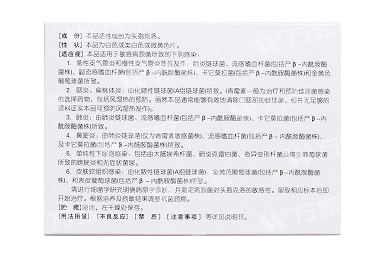 [成 份] 本品活性成份为头孢克洛。
[性 状] 本品为白色或类白色或微黄色片。
[适应症] 本品适用于敏感病原菌所致的下列感染：
1．急性支气管炎和慢性支气管炎急性发作：肺炎链球菌、流感嗜血杆菌(包括产β-内酰胺酶
菌株)、副流感嗜血杆菌(包括产β-内酰胺酶菌株)、卡它莫拉菌(包括产β-内酰胺酶菌株)和金黄色
葡萄球菌所致。
2．咽炎、扁桃体炎：由化脓性链球菌(A组链球菌)所致。(青霉素一般为治疗和预防链球菌感染
的选择药物，包括风湿热的预防。虽然本品通常能够有效地清除口咽部的链球菌，但并无足够的
资料证实本品可预防风湿热发作)。
3．肺炎：由肺炎链球菌、流感嗜血杆菌(包括产β-内酰胺酶菌株)、卡它莫拉菌(包括产β-内
酰胺酶菌株)所致。
4．鼻窦炎：由肺炎链球菌(仅为青霉素敏感菌株)、流感嗜血杆菌(包括产β-内酰胺酶菌株)、
及卡它莫拉菌(包括产β-内酰胺酶菌株)所致。
5．单纯性下尿道感染：包括由大肠埃希杆菌、肺炎克雷伯菌、奇异变形杆菌及腐生葡萄球菌
所致的膀胱炎和无症状菌尿。
6．皮肤软组织感染：由化脓性链球菌(A组链球菌)、金黄色葡萄球菌(包括产β-内酰胺酶菌
株)、和表皮葡萄球菌(包括产β-内酰胺酶菌株)所致。
需进行细菌学研究明确病原学诊断，并测定病原菌对头孢克洛的敏感性。留取相应标本后即
开始治疗。根据培养及药敏结果调整抗菌药物。
[贮 藏] 密闭，在干燥处保存。
[用法用量] [不良反应] [禁 忌] [注意事项] 等详见说明书。